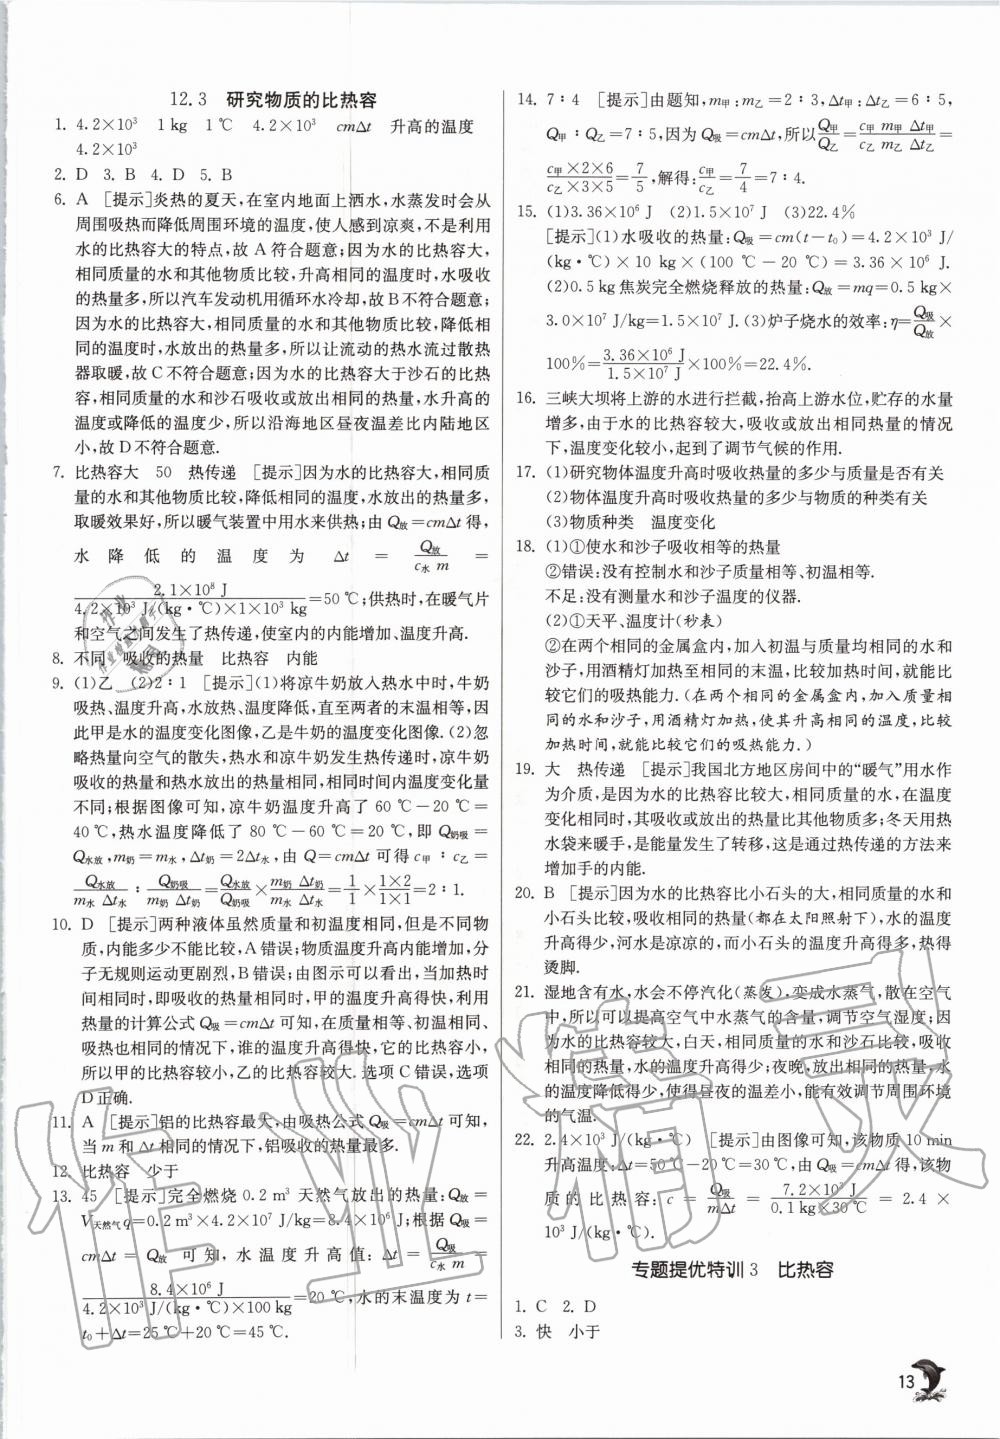 12.3 研究物质的比热容
1. 4.2×10³ 1 kg 1 ℃ 4.2×10³ cmΔt 升高的温度
4.2×10³
2. D 3. B 4. D 5. B
6. A [提示]炎热的夏天,在室内地面上洒水,水蒸发时会从
周围吸热而降低周围环境的温度,使人感到凉爽,不是利用
水的比热容大的特点,故 A 符合题意;因为水的比热容大,
相同质量的水和其他物质比较,升高相同的温度时,水吸收
的热量多,所以汽车发动机用循环水冷却,故 B 不符合题意;
因为水的比热容大,相同质量的水和其他物质比较,降低相
同的温度时,水放出的热量多,所以让流动的热水流过散热
器取暖,故 C 不符合题意;因为水的比热容大于沙石的比热
容,相同质量的水和沙石吸收或放出相同的热量,水升高的
温度或降低的温度少,所以沿海地区昼夜温差比内陆地区
小,故 D 不符合题意.
7. 比热容大 50 热传递 [提示]因为水的比热容大,相同质
量的水和其他物质比较,降低相同的温度,水放出的热量多,
取暖效果好,所以暖气装置中用水来供热;由 Q放=cmΔt 得,
水降低的温度为 Δt = Q放/(c水 m) =
2.1×10⁸ J/(4.2×10³ J/(kg·℃)×1×10³ kg)=50 ℃;供热时,在暖气片
和空气之间发生了热传递,使室内的内能增加、温度升高.
8. 不同 吸收的热量 比热容 内能
9. (1)乙 (2)2∶1 [提示](1)将凉牛奶放入热水中时,牛奶
吸热、温度升高,水放热、温度降低,直至两者的末温相等,因
此甲是水的温度变化图像,乙是牛奶的温度变化图像.(2)忽
略热量向空气的散失,热水和凉牛奶发生热传递时,凉牛奶
吸收的热量和热水放出的热量相同,相同时间内温度变化量
不同;根据图像可知,凉牛奶温度升高了 60 ℃-20 ℃=
40 ℃,热水温度降低了 80 ℃-60 ℃=20 ℃,即 Q奶吸=
Q水放,m奶=m水,Δt奶=2Δt水,由 Q=cmΔt 可得 c甲∶c乙=
Q水放/(m水 Δt水)∶Q奶吸/(m奶 Δt奶)=Q水放/Q奶吸×(m奶 Δt奶)/(m水 Δt水)=1/1×(1×2)/(1×1)=2∶1.
10. D [提示]两种液体虽然质量和初温度相同,但不同物
质,内能多少不能比较,A 错误;物质温度升高内能增加,分
子无规则运动更剧烈,B 错误;由图示可以看出,当加热时
间相同时,即吸收的热量相同时,甲的温度升高得快,利用
热量的计算公式 Q吸=cmΔt 可知,在质量相等、初温相同、
吸热也相同的情况下,谁的温度升高得快,它的比热容小,
所以甲的比热容较小,乙的比热容较大. 选项 C 错误,选项
D 正确.
11. A [提示]铝的比热容最大,由吸热公式 Q吸=cmΔt 可知,
当 m 和 Δt 相同的情况下,铝吸收的热量最多.
12. 比热容 少于
13. 45 [提示]完全燃烧 0.2 m³ 天然气放出的热量:Q放=
V天然气q=0.2 m³×4.2×10⁷ J/kg=8.4×10⁶ J;根据 Q吸=
cmΔt = Q放 可知,水温度升高值: Δt = Q吸/(c水 m) =
8.4×10⁶ J/(4.2×10³ J/(kg·℃)×100 kg)=20 ℃,水的末温度为 t=
t₀+Δt=25 ℃+20 ℃=45 ℃.
14. 7∶4 [提示]由题知,m甲∶m乙=2∶3,Δt甲∶Δt乙=6∶5,
Q甲∶Q乙=7∶5,因为 Q吸=cmΔt,所以Q甲/Q乙=(c甲 m甲 Δt甲)/(c乙 m乙 Δt乙)=
(c甲×2×6)/(c乙×3×5)=7/5,解得:c甲/c乙=7/4=7∶4.
15. (1)3.36×10⁶ J (2)1.5×10⁷ J (3)22.4%
[提示](1)水吸收的热量:Q吸=cm(t-t₀)=4.2×10³ J/
(kg·℃)×10 kg×(100 ℃-20 ℃)=3.36×10⁶ J.
(2)0.5 kg 焦炭完全燃烧释放的热量:Q放=mq=0.5 kg×
3.0×10⁷ J/kg=1.5×10⁷ J.(3)炉子烧水的效率:η=Q吸/Q放×
100%=3.36×10⁶ J/1.5×10⁷ J×100%=22.4%.
16. 三峡大坝将上游的水进行拦截,抬高上游水位,贮存的水量
增多,由于水的比热容较大,吸收或放出相同热量的情况
下,温度变化较小,起到了调节气候的作用.
17. (1)研究物体温度升高时吸收热量的多少与质量是否有关
(2)物体温度升高时吸收热量的多少与物质的种类有关
(3)物质种类 温度变化
18. (1)①使水和沙子吸收相等的热量
②错误:没有控制水和沙子质量相等、初温相等.
不足:没有测量水和沙子温度的仪器.
(2)①天平、温度计(秒表)
②在两个相同的金属盒内,加入初温与质量均相同的水和
沙子,用酒精灯加热至相同的末温,比较加热时间,就能比
较它们的吸热能力.(在两个相同的金属盒内,加入质量相
同的水和沙子,用酒精灯加热,使其升高相同的温度,比较
加热时间,就能比较它们的吸热能力.)
19. 大 热传递 [提示]我国北方地区房间中的“暖气”用水作
作为介质,是因为水的比热容比较大,相同质量的水,在温度
变化相同时,其吸收或放出的热量比其他物质多;冬天用热
水袋来暖手,是能量发生了转移,这是通过热传递的方法来
增加手的内能.
20. B [提示]因为水的比热容比小石头的大,相同质量的水和
小石头比较,吸收相同的热量(都在太阳照射下),水的温度
升高得少,河水是凉凉的,而小石头的温度升高得多,热得
烫脚.
21. 湿地含有水,水会不停汽化(蒸发),变成水蒸气,散在空气
中,所以可以提高空气中水蒸气的含量,调节空气湿度;因
为水的比热容较大,白天,相同质量的水和沙石比较,吸收
相同的热量,水的温度升高得少;夜晚,放出相同的热量,水
的温度降低得少,使得昼夜的温差小,能有效调节周围环境
的气温.
22. 2.4×10³ J/(kg·℃) [提示]由图像可知,该物质 10 min
升高温度:Δt=50 ℃-20 ℃=30 ℃,由 Q吸=cmΔt 得,该物
质的比热容: c = Q吸/(mΔt) = 7.2×10³ J/(0.1 kg×30 ℃) = 2.4 ×
10³ J/(kg·℃).
专题提优特训 3 比热容
1. C 2. D
3. 快 小于
13
作业精灵